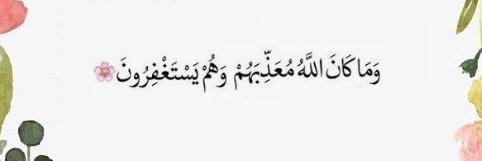 وَمَا كَانَ اللَّهُ مُعَذِّبَهُمْ وَهُمْ يَسْتَغْفِرُونَ🌸